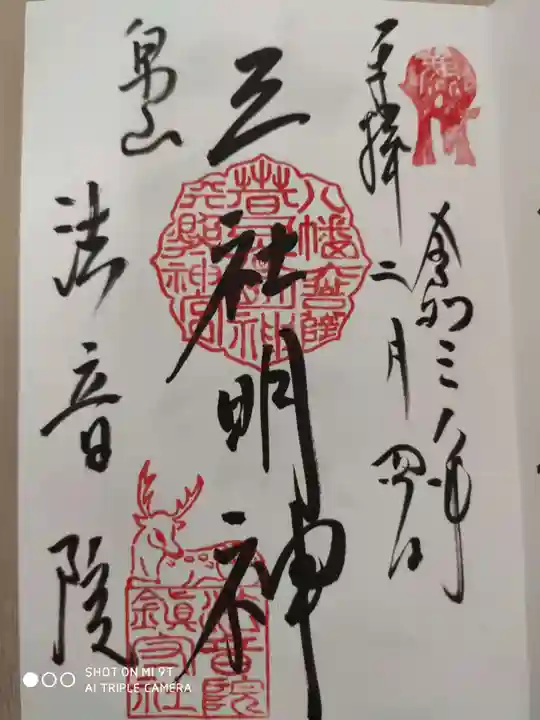 奉拝
令和三年
二月四日
三社明神
泉山
法音院
法音院
鎮守社
SHOT ON MI 9T
AI TRIPLE CAMERA